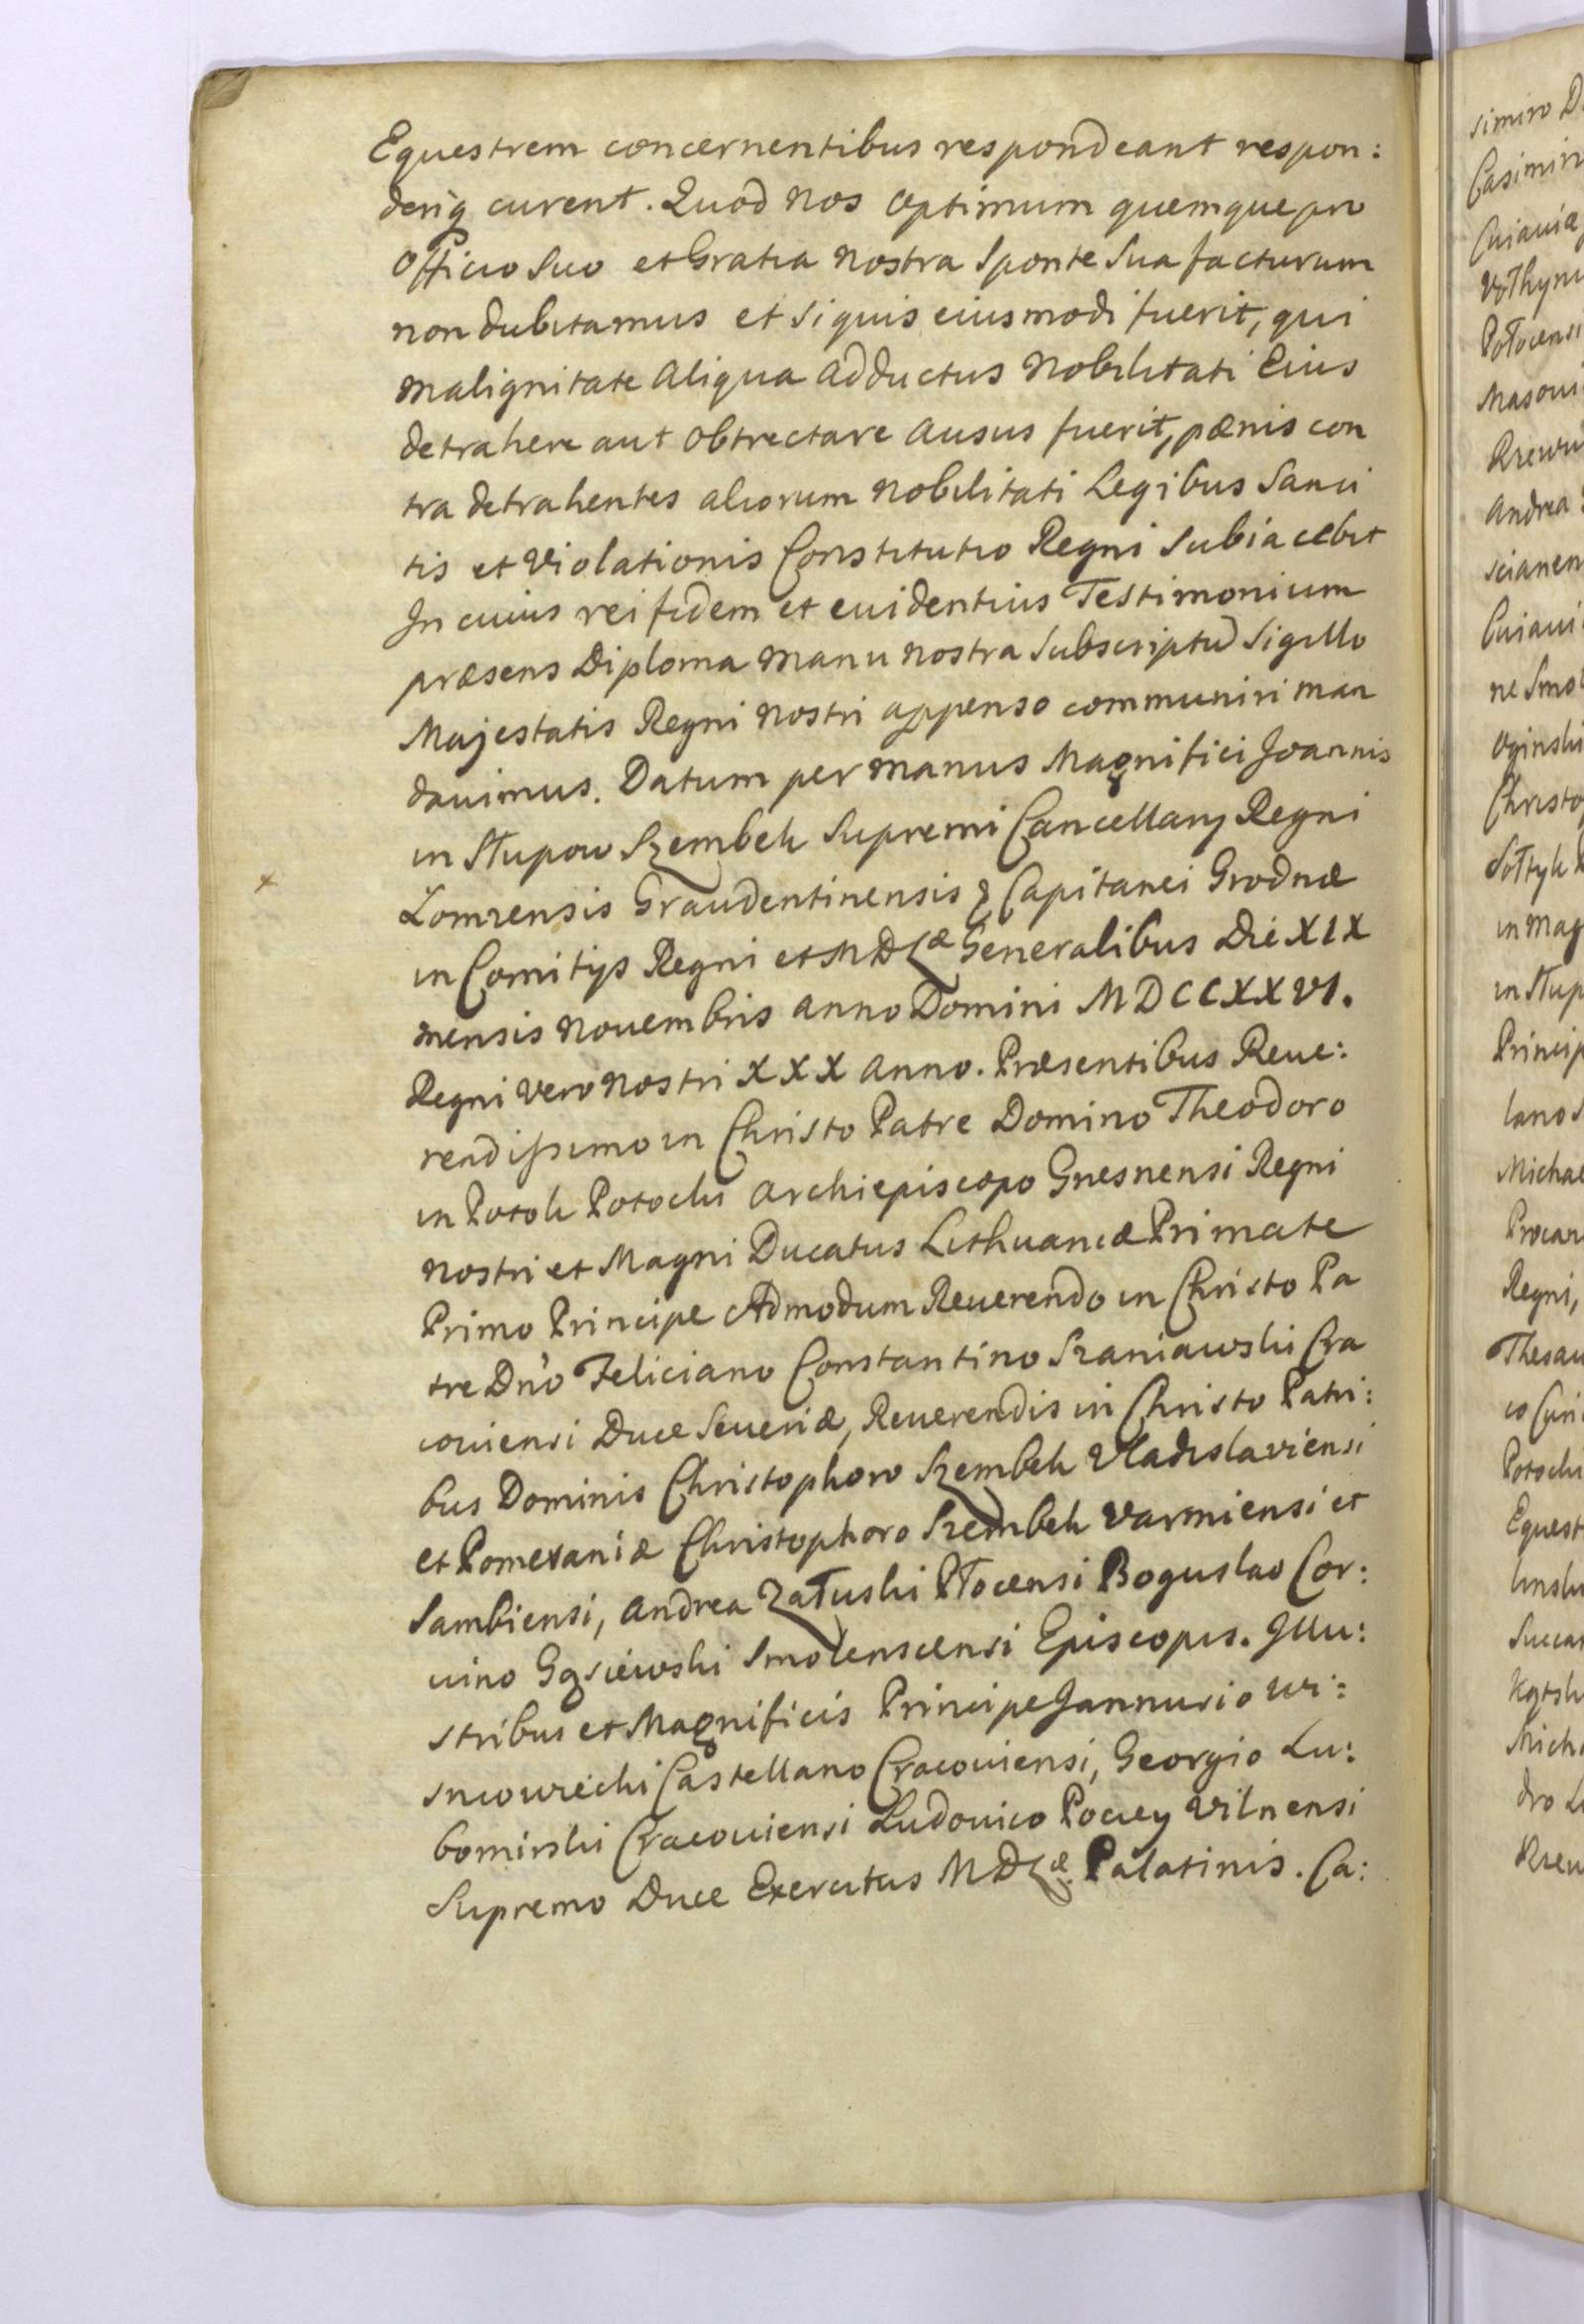 Equestrem concernentibus respondeant respon:
deriq curent. Quod nos optimum quemque pro
Officio Suo et Gratia nostra Sponte Sua facturum
non dubitamus et siquis eiusmodi fuerit, qui
malignitate aliqua adductus nobilitati Eius
detrahere aut obtrectare ausus fuerit, pænis con
tra detrahentes aliorum nobilitati Legibus Sanci
tis et violationis Constitutio Regni Subiacebit
In cuius rei fidem et evidentius Testimonium
præsens Diploma manu nostra Subscriptū Sigillo
Majestatis Regni nostri appenso communiri man
davimus. Datum per manus Magnifici Joannis
in Słupow Szembek Supremi Cancellarij Regni
Łomzensis Graudentinensis & Capitanei Grodnæ
in Comitijs Regni et M D Læ Generalibus Die XIX
mensis novembris anno Domini MDCCXXVI.
Regni vero nostri XXX anno. Præsentibus Reve:
rendissimo in Christo Patre Domino Theodoro
in Potok Potocki Archiepiscopo Gnesnensi Regni
nostri et Magni Ducatus Lithuaniæ Primate
Primo Principe Admodum Reverendo in Christo Pa
tre Dn̄o Feliciano Constantino Szaniawski Cra
coviensi Duce Severiæ, Reverendis in Christo Patri:
bus Dominis Christophoro Szembek Vladislaviensi
et Pomeraniæ Christophoro Szembek Varmiensi et
Sambiensi, Andrea Załuski Płocensi Boguslao Cor:
vino Gąsiewski Smolenscensi Episcopis. Illu:
stribus et Magnificis Principe Jannusio Wi:
sniowiecki Castellano Cracoviensi, Georgio Lu:
bomirski Cracoviensi Ludovico Pociey Vilnensi
Supremo Duce Exercitus M D Læ. Palatinis. Ca: